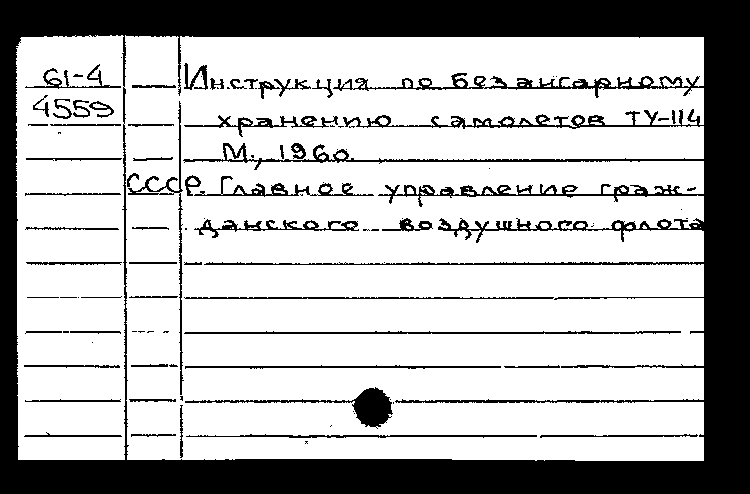 61-4 Инструкция по безангарному
4559 хранению самолетов ТУ-114
М., 1960.
СССР. Главное управление граж-
данского воздушного флота